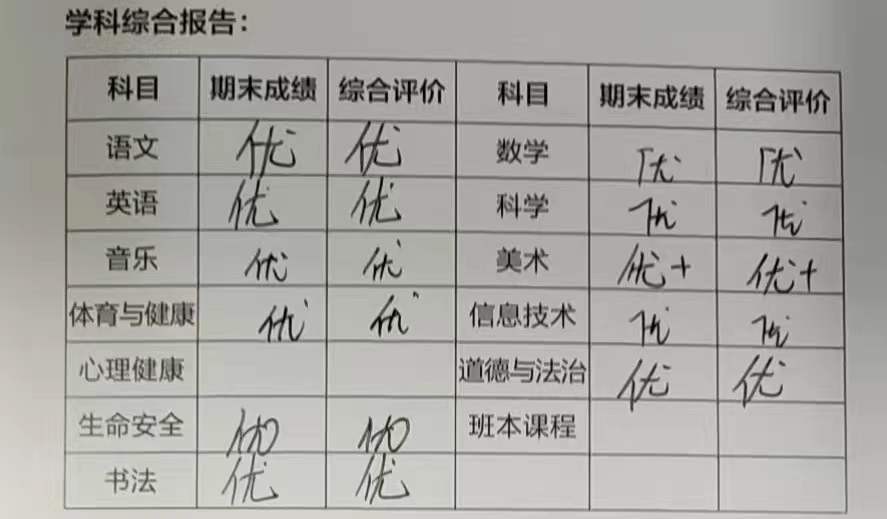 学科综合报告：
科目 期末成绩 综合评价 科目 期末成绩 综合评价
语文 优 优 数学 优 优
英语 优 优 科学 优 优
音乐 优 优 美术 优+ 优+
体育与健康 优 优 信息技术 优 优
心理健康 道德与法治 优 优
生命安全 优 优 班本课程
书法 优 优